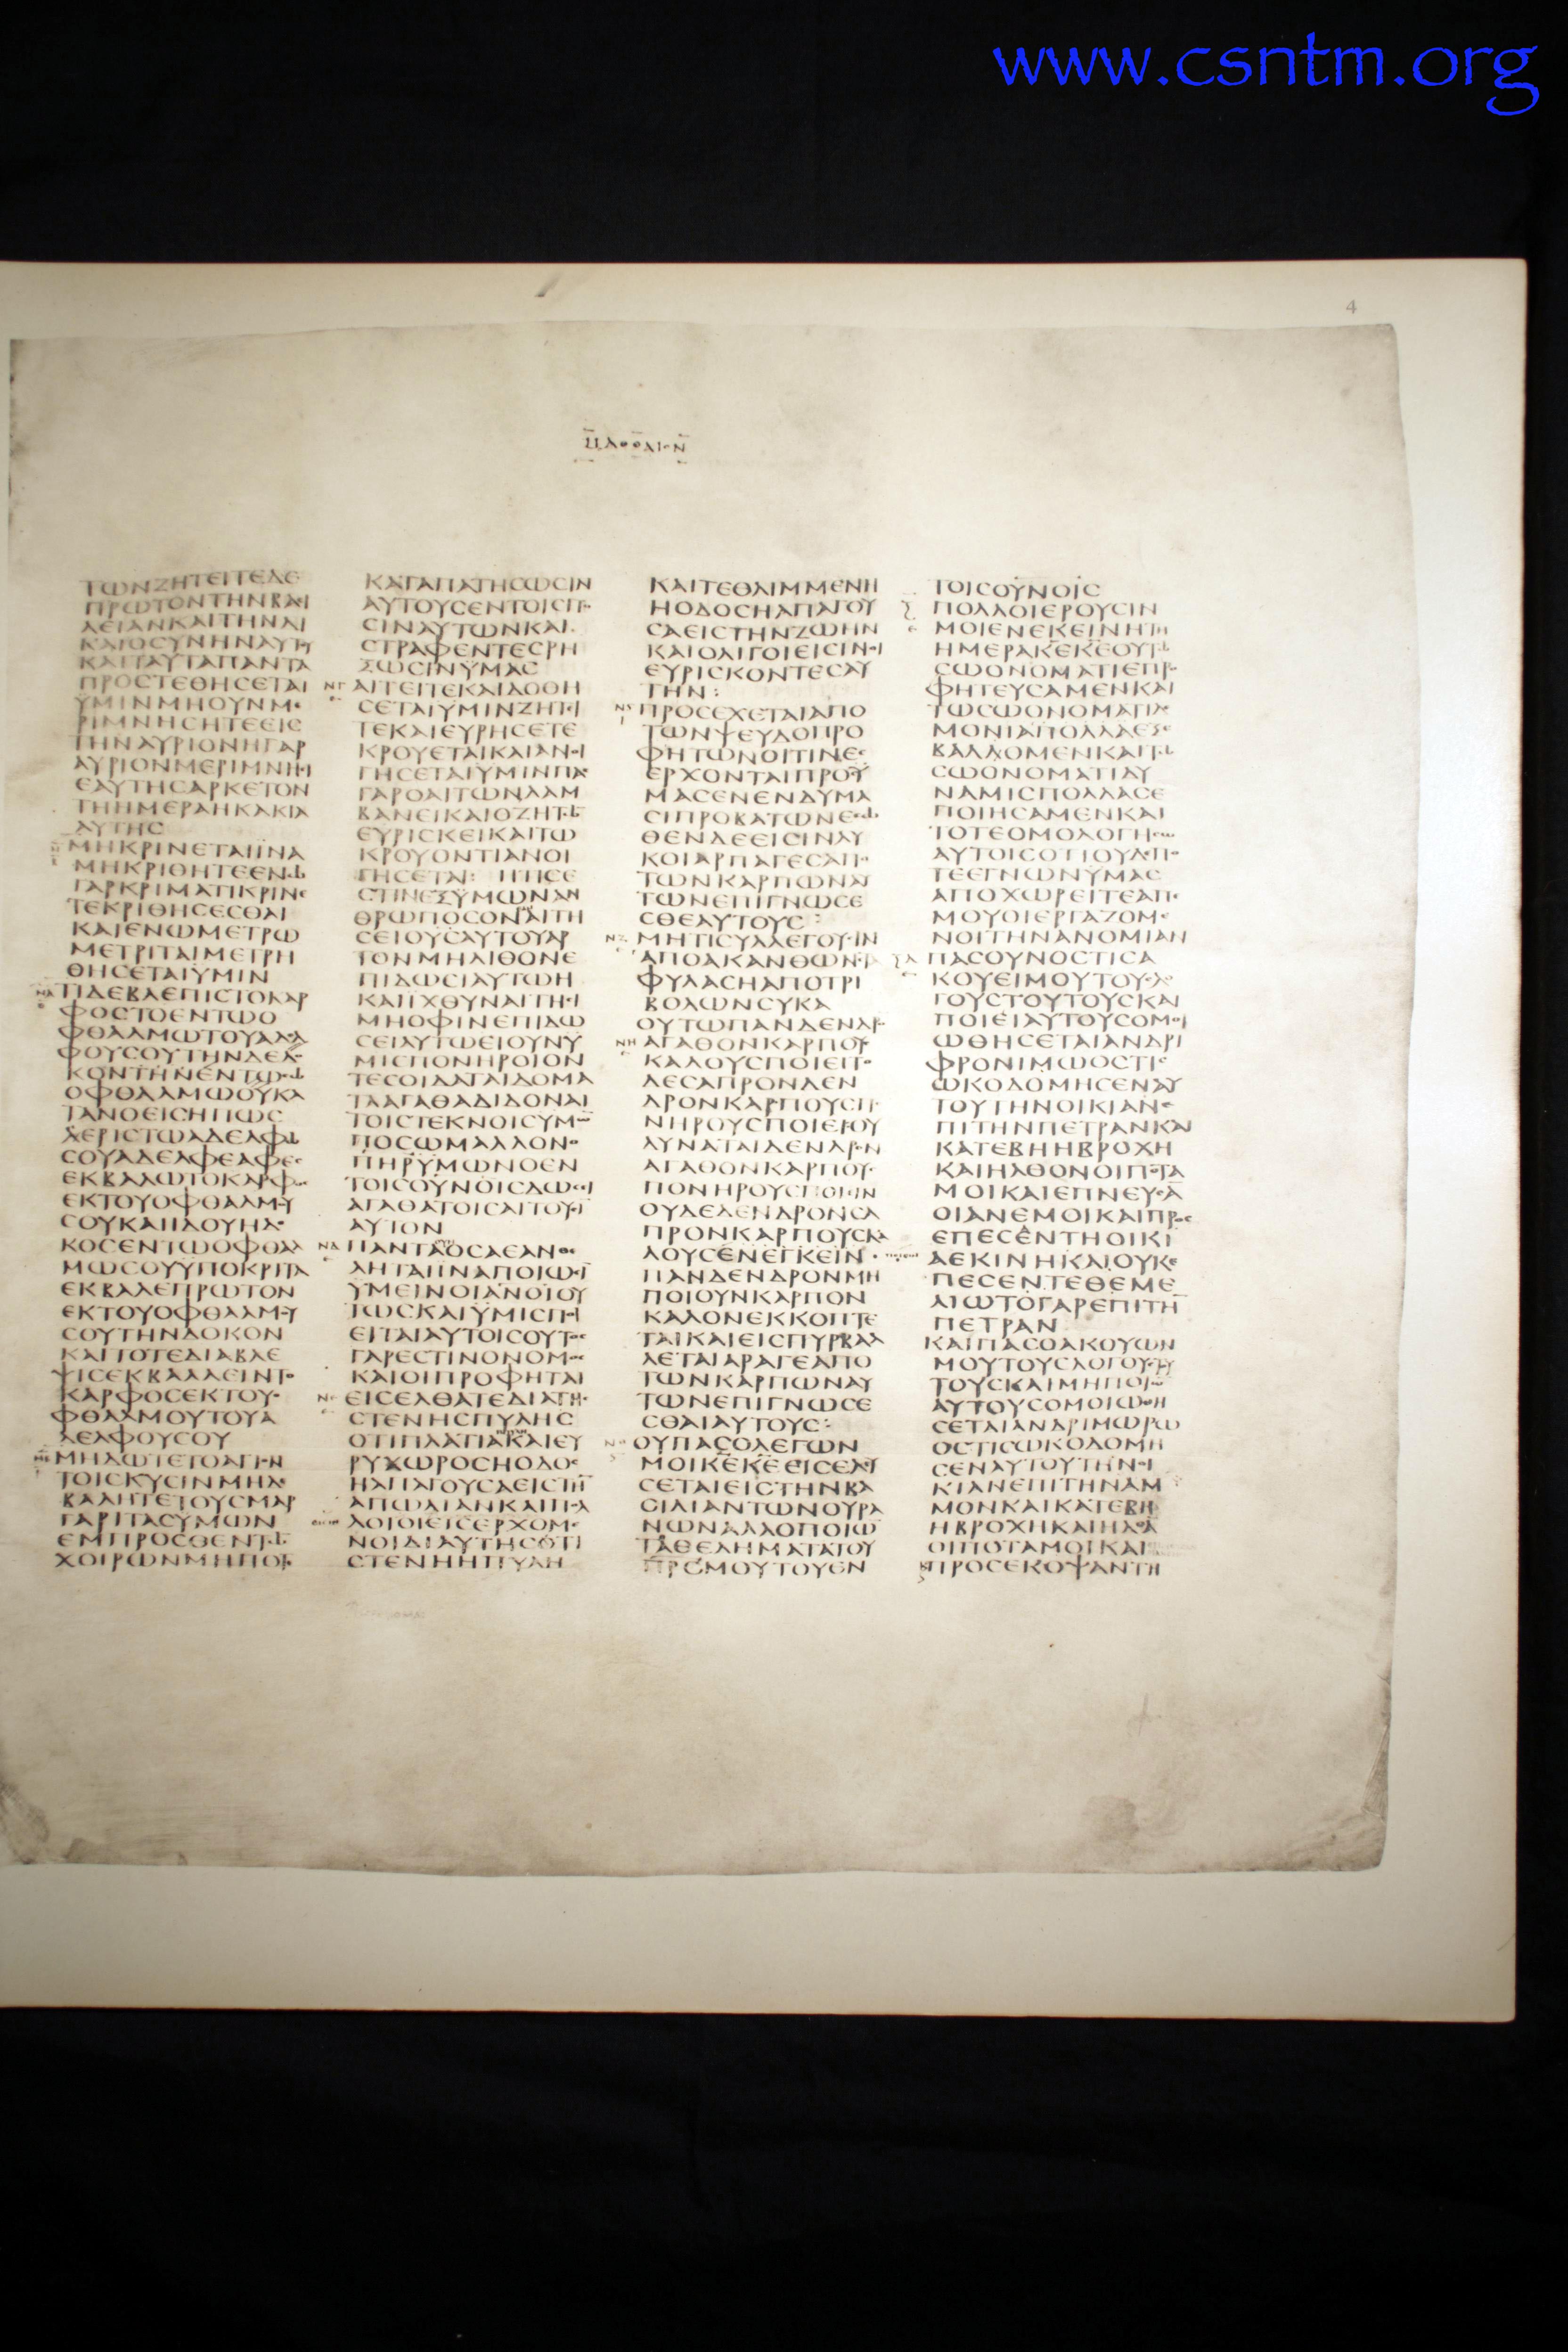 www.csntm.org
4
ΜΑΘΘΑΙΟΝ
ΤΩΝΖΗΤΕΙΤΕΔΕ
ΠΡΩΤΟΝΤΗΝΒΑϹΙ
ΛΕΙΑΝΚΑΙΤΗΝΔΙ
ΚΑΙΟϹΥΝΗΝΑΥΤΟΥ
ΚΑΙΤΑΥΤΑΠΑΝΤΑ
ΠΡΟϹΤΕΘΗϹΕΤΑΙ
ΥΜΙΝΜΗΟΥΝΜΕ
ΡΙΜΝΗϹΗΤΕΕΙϹ
ΤΗΝΑΥΡΙΟΝΗΓΑΡ
ΑΥΡΙΟΝΜΕΡΙΜΝΗϹΙ
ΕΑΥΤΗϹΑΡΚΕΤΟΝ
ΤΗΗΜΕΡΑΗΚΑΚΙΑ
ΑΥΤΗϹ
ΜΗΚΡΙΝΕΤΑΙΪΝΑ
ΜΗΚΡΙΘΗΤΕΕΝΩ
ΓΑΡΚΡΙΜΑΤΙΚΡΙΝΕ
ΤΕΚΡΙΘΗϹΕϹΘΑΙ
ΚΑΙΕΝΩΜΕΤΡΩ
ΜΕΤΡΙΤΑΙΜΕΤΡΗ
ΘΗϹΕΤΑΙΥΜΙΝ
ΤΙΔΕΒΛΕΠΙϹΤΟΚΑΡ
ΦΟϹΤΟΕΝΤΩΟ
ΦΘΑΛΜΩΤΟΥΑΔΕΛ
ΦΟΥϹΟΥΤΗΝΔΕΔΟ
ΚΟΝΤΗΝΕΝΤΩϹΩ
ΟΦΘΑΛΜΩΟΥΚΑ
ΤΑΝΟΕΙϹΗΠΩϹ
ΛΕΡΙϹΤΩΑΔΕΛΦΩ
ϹΟΥΑΔΕΛΦΕΑΦΕϹ
ΕΚΒΑΛΩΤΟΚΑΡΦΟϹ
ΕΚΤΟΥΟΦΘΑΛΜΟΥ
ϹΟΥΚΑΙΙΔΟΥΗΔΟ
ΚΟϹΕΝΤΩΟΦΘΑΛ
ΜΩϹΟΥΥΠΟΚΡΙΤΑ
ΕΚΒΑΛΕΠΡΩΤΟΝ
ΕΚΤΟΥΟΦΘΑΛΜΟΥ
ϹΟΥΤΗΝΔΟΚΟΝ
ΚΑΙΤΟΤΕΔΙΑΒΛΕ
ΨΙϹΕΚΒΑΛΛΕΙΝΤΟ
ΚΑΡΦΟϹΕΚΤΟΥΟ
ΦΘΑΛΜΟΥΤΟΥΑ
ΔΕΛΦΟΥϹΟΥ
ΜΗΔΩΤΕΤΟΑΓΙΟΝ
ΤΟΙϹΚΥϹΙΝΜΗΔΕ
ΒΑΛΗΤΕΤΟΥϹΜΑΡ
ΓΑΡΙΤΑϹΥΜΩΝ
ΕΜΠΡΟϹΘΕΝΤΩ
ΧΟΙΡΩΝΜΗΠΟΤΕ
ΚΑΤΑΠΑΤΗϹΩϹΙΝ
ΑΥΤΟΥϹΕΝΤΟΙϹΠΟ
ϹΙΝΑΥΤΩΝΚΑΙ
ϹΤΡΑΦΕΝΤΕϹΡΗ
ΞΩϹΙΝΥΜΑϹ
ΝΓ ΑΙΤΕΙΤΕΚΑΙΔΟΘΗ
ϹΕΤΑΙΥΜΙΝΖΗΤΙ
ΤΕΚΑΙΕΥΡΗϹΕΤΕ
ΚΡΟΥΕΤΑΙΚΑΙΑΝΟΙ
ΓΗϹΕΤΑΙΥΜΙΝΠΑϹ
ΓΑΡΟΑΙΤΩΝΛΑΜ
ΒΑΝΕΙΚΑΙΟΖΗΤΩ
ΕΥΡΙϹΚΕΙΚΑΙΤΩ
ΚΡΟΥΟΝΤΙΑΝΟΙ
ΓΗϹΕΤΑΙ: ΗΤΙϹΕ
ϹΤΙΝΕΞΥΜΩΝΑΝ
ΘΡΩΠΟϹΟΝΑΙΤΗ
ϹΕΙΟΥϹΑΥΤΟΥΑΡ
ΤΟΝΜΗΛΙΘΟΝΕ
ΠΙΔΩϹΙΑΥΤΩΗ
ΚΑΙΪΧΘΥΝΑΙΤΗϹΙ
ΜΗΟΦΙΝΕΠΙΔΩ
ϹΕΙΑΥΤΩΕΙΟΥΝΥ
ΜΙϹΠΟΝΗΡΟΙΟΝ
ΤΕϹΟΙΔΑΤΑΙΔΟΜΑ
ΤΑΑΓΑΘΑΔΙΔΟΝΑΙ
ΤΟΙϹΤΕΚΝΟΙϹΥΜΩ
ΠΟϹΩΜΑΛΛΟΝΟ
ΠΗΡΥΜΩΝΟΕΝ
ΤΟΙϹΟΥΝΟΙϹΔΩϹΙ
ΑΓΑΘΑΤΟΙϹΑΙΤΟΥϹΙ
ΑΥΤΟΝ
ΝΔ ΠΑΝΤΑΟϹΑΕΑΝΘΕ
ΛΗΤΑΙΪΝΑΠΟΙΩϹΙ
ΥΜΕΙΝΟΙΑΝΟΙΟΥ
ΤΩϹΚΑΙΥΜΙϹΠΟΙ
ΕΙΤΑΙΑΥΤΟΙϹΟΥΤΟϹ
ΓΑΡΕϹΤΙΝΟΝΟΜΟϹ
ΚΑΙΟΙΠΡΟΦΗΤΑΙ
ΝΕ ΕΙϹΕΛΘΑΤΕΔΙΑΤΗϹ
ϹΤΕΝΗϹΠΥΛΗϹ
ΟΤΙΠΛΑΤΙΑΚΑΙΕΥ
ΡΥΧΩΡΟϹΗΟΔΟϹ
ΗΑΠΑΓΟΥϹΑΕΙϹΤΗ
ΑΠΩΛΙΑΝΚΑΙΠΟΛ
ΛΟΙΟΙΕΙϹΕΡΧΟΜΕ
ΝΟΙΔΙΑΥΤΗϹΟΤΙ
ϹΤΕΝΗΗΠΥΛΗ
ΚΑΙΤΕΘΛΙΜΜΕΝΗ
ΗΟΔΟϹΗΑΠΑΓΟΥ
ϹΑΕΙϹΤΗΝΖΩΗΝ
ΚΑΙΟΛΙΓΟΙΕΙϹΙΝΟΙ
ΕΥΡΙϹΚΟΝΤΕϹΑΥ
ΤΗΝ:
ΠΡΟϹΕΧΕΤΑΙΑΠΟ
ΤΩΝΨΕΥΔΟΠΡΟ
ΦΗΤΩΝΟΙΤΙΝΕϹ
ΕΡΧΟΝΤΑΙΠΡΟϹΥ
ΜΑϹΕΝΕΝΔΥΜΑ
ϹΙΠΡΟΒΑΤΩΝΕϹΩ
ΘΕΝΔΕΕΙϹΙΝΛΥ
ΚΟΙΑΡΠΑΓΕϹΑΠΟ
ΤΩΝΚΑΡΠΩΝΑΥ
ΤΩΝΕΠΙΓΝΩϹΕ
ϹΘΕΑΥΤΟΥϹ:
ΜΗΤΙϹΥΛΛΕΓΟΥϹΙΝ
ΑΠΟΑΚΑΝΘΩΝϹΤΑ
ΦΥΛΑϹΗΑΠΟΤΡΙ
ΒΟΛΩΝϹΥΚΑ
ΟΥΤΩΠΑΝΔΕΝΔΡΟ
ΝΗ ΑΓΑΘΟΝΚΑΡΠΟΥϹ
ΚΑΛΟΥϹΠΟΙΕΙΤΟ
ΔΕϹΑΠΡΟΝΔΕΝ
ΔΡΟΝΚΑΡΠΟΥϹΠΟ
ΝΗΡΟΥϹΠΟΙΕΙΟΥ
ΔΥΝΑΤΑΙΔΕΝΔΡΟΝ
ΑΓΑΘΟΝΚΑΡΠΟΥϹ
ΠΟΝΗΡΟΥϹΠΟΙΕΙΝ
ΟΥΔΕΔΕΝΔΡΟΝϹΑ
ΠΡΟΝΚΑΡΠΟΥϹΚΑ
ΛΟΥϹΕΝΕΓΚΕΙΝ
ΠΑΝΔΕΝΔΡΟΝΜΗ
ΠΟΙΟΥΝΚΑΡΠΟΝ
ΚΑΛΟΝΕΚΚΟΠΤΕ
ΤΑΙΚΑΙΕΙϹΠΥΡΒΑΛ
ΛΕΤΑΙΑΡΑΓΕΑΠΟ
ΤΩΝΚΑΡΠΩΝΑΥ
ΤΩΝΕΠΙΓΝΩϹΕ
ϹΘΑΙΑΥΤΟΥϹ:
ΟΥΠΑϹΟΛΕΓΩΝ
ΜΟΙΚΕΚΕΕΙϹΕΛΕΥ
ϹΕΤΑΙΕΙϹΤΗΝΒΑ
ϹΙΛΙΑΝΤΩΝΟΥΡΑ
ΝΩΝΑΛΛΟΠΟΙΩ
ΤΑΘΕΛΗΜΑΤΑΤΟΥ
ΠΡϹΜΟΥΤΟΥΕΝ
ΤΟΙϹΟΥΝΟΙϹ
ΠΟΛΛΟΙΕΡΟΥϹΙΝ
ΜΟΙΕΝΕΚΕΙΝΗΤΗ
ΗΜΕΡΑΚΕΚΕΟΥΤΩ
ϹΩΟΝΟΜΑΤΙΕΠΡΟ
ΦΗΤΕΥϹΑΜΕΝΚΑΙ
ΤΩϹΩΟΝΟΜΑΤΙΔΑΙ
ΜΟΝΙΑΠΟΛΛΑΕΞΕ
ΒΑΛΛΟΜΕΝΚΑΙΤΩ
ϹΩΟΝΟΜΑΤΙΔΥ
ΝΑΜΙϹΠΟΛΛΑϹΕ
ΠΟΙΗϹΑΜΕΝΚΑΙ
ΤΟΤΕΟΜΟΛΟΓΗϹΩ
ΑΥΤΟΙϹΟΤΙΟΥΔΕΠΟ
ΤΕΕΓΝΩΝΥΜΑϹ
ΑΠΟΧΩΡΕΙΤΕΑΠΕ
ΜΟΥΟΙΕΡΓΑΖΟΜΕ
ΝΟΙΤΗΝΑΝΟΜΙΑΝ
ΞΑ ΠΑϹΟΥΝΟϹΤΙϹΑ
ΚΟΥΕΙΜΟΥΤΟΥϹΛΟ
ΓΟΥϹΤΟΥΤΟΥϹΚΑΙ
ΠΟΙΕΙΑΥΤΟΥϹΟΜΟΙ
ΩΘΗϹΕΤΑΙΑΝΔΡΙ
ΦΡΟΝΙΜΩΟϹΤΙϹ
ΩΚΟΔΟΜΗϹΕΝΑΥ
ΤΟΥΤΗΝΟΙΚΙΑΝΕ
ΠΙΤΗΝΠΕΤΡΑΝΚΑΙ
ΚΑΤΕΒΗΗΒΡΟΧΗ
ΚΑΙΗΛΘΟΝΟΙΠΟΤΑ
ΜΟΙΚΑΙΕΠΝΕΥϹΑ
ΟΙΑΝΕΜΟΙΚΑΙΠΡΟϹ
ΕΠΕϹΕΝΤΗΟΙΚΙ
ΑΕΚΙΝΗΚΑΙΟΥΚΕ
ΠΕϹΕΝΤΕΘΕΜΕ
ΛΙΩΤΟΓΑΡΕΠΙΤΗ
ΠΕΤΡΑΝ
ΚΑΙΠΑϹΟΑΚΟΥΩΝ
ΜΟΥΤΟΥϹΛΟΓΟΥϹΤΥ
ΤΟΥϹΚΑΙΜΗΠΟΙΩ
ΑΥΤΟΥϹΟΜΟΙΩΘΗ
ϹΕΤΑΙΑΝΔΡΙΜΩΡΩ
ΟϹΤΙϹΩΚΟΔΟΜΗ
ϹΕΝΑΥΤΟΥΤΗΝΟΙ
ΚΙΑΝΕΠΙΤΗΝΑΜ
ΜΟΝΚΑΙΚΑΤΕΒΗ
ΗΒΡΟΧΗΚΑΙΗΛΘΑ
ΟΙΠΟΤΑΜΟΙΚΑΙ
ΠΡΟϹΕΚΟΨΑΝΤΗ